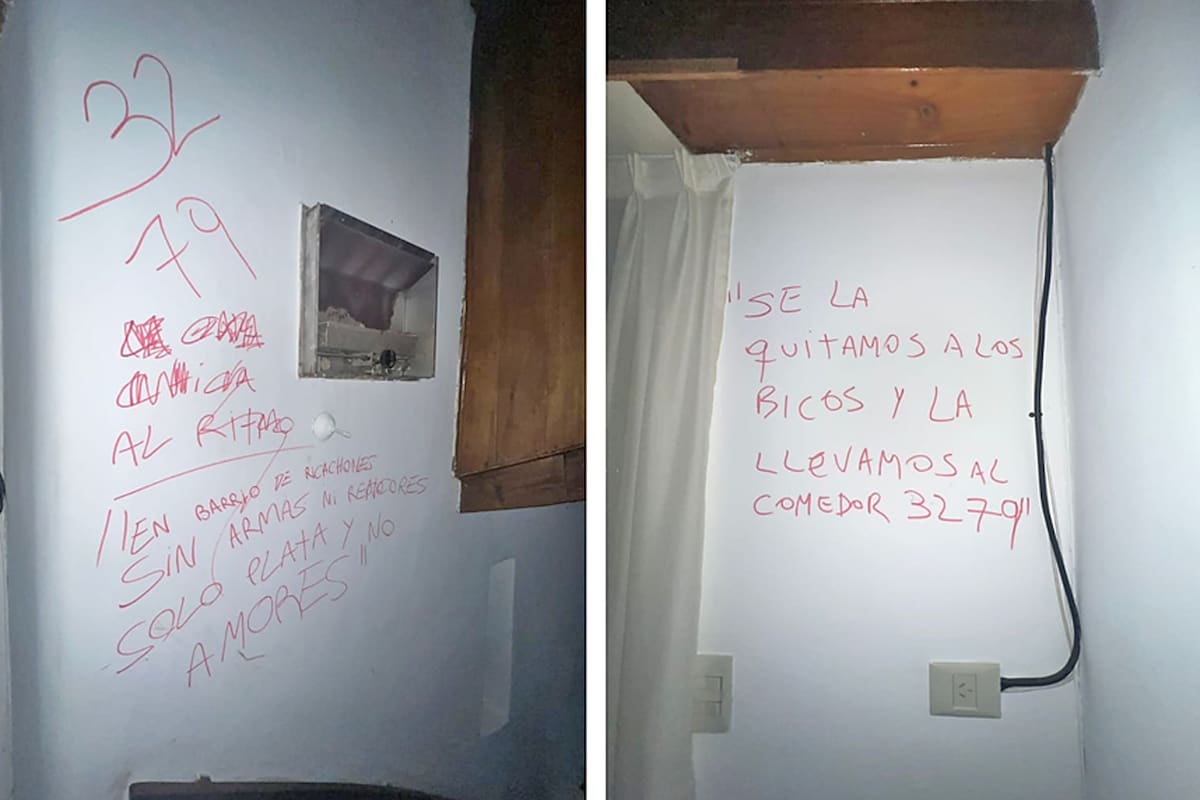 32
79
AL RITMO
"EN BARRIO DE RICACHONES
SIN ARMAS NI REATCORES
SOLO PLATA Y NO
AMORES"
"SE LA
QUITAMOS A LOS
BICOS Y LA
LLEVAMOS AL
COMEDOR 3279"